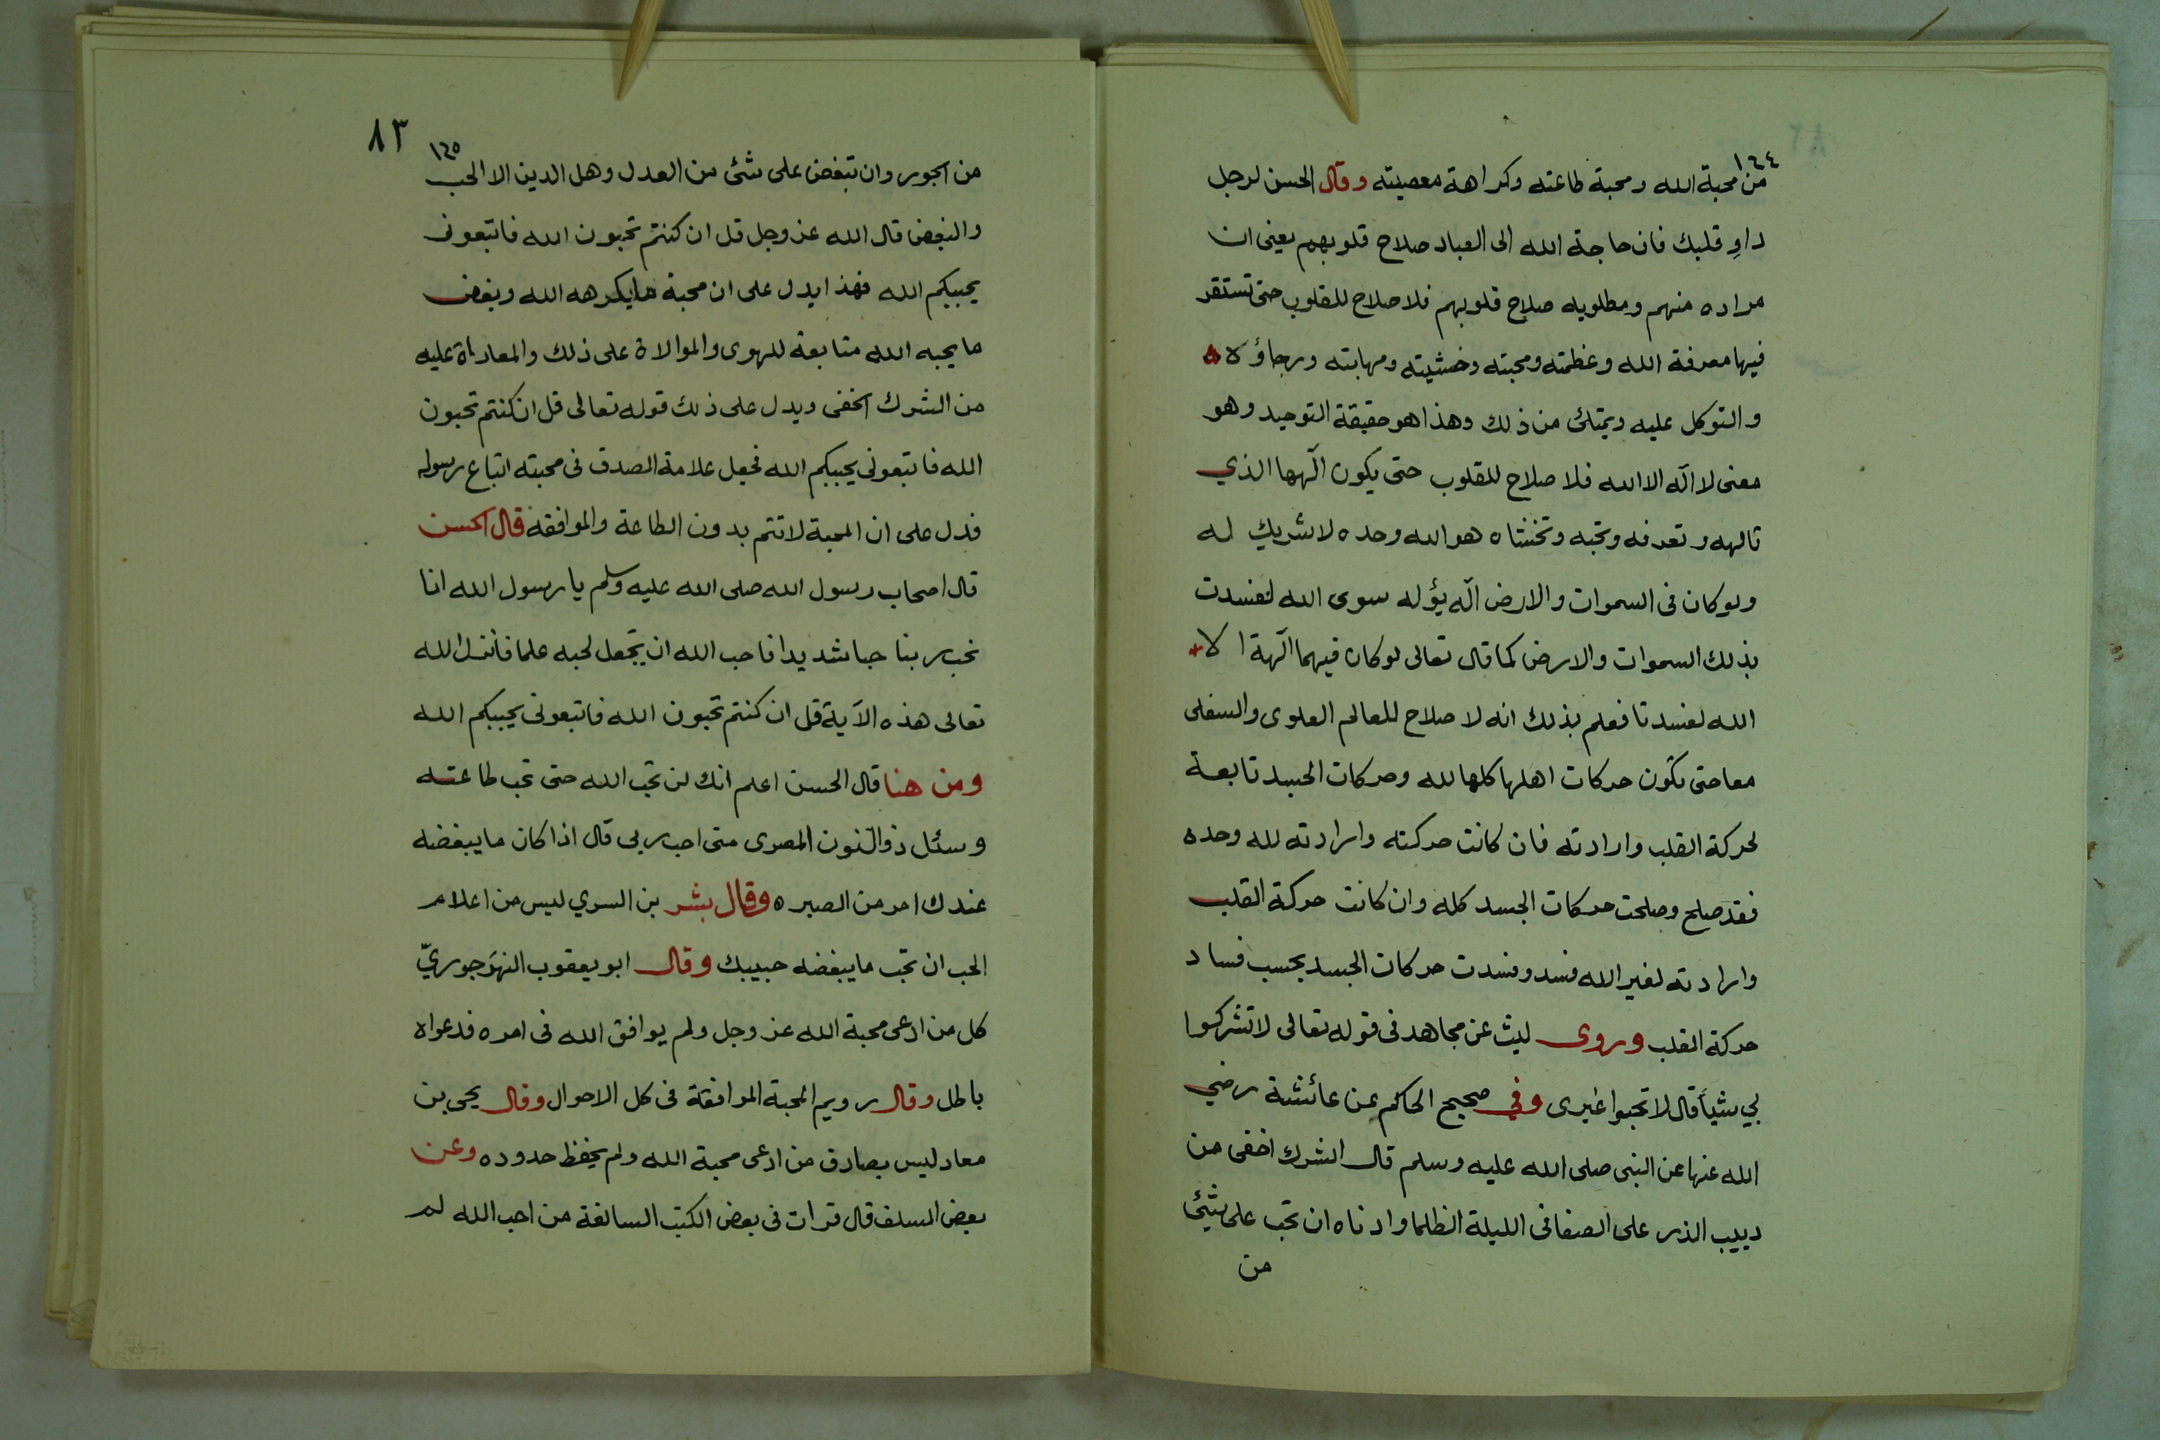 ١٦٤
من محبة الله ومحبة طاعته وكراهة معصيته وقال الحسن لرجل
داوِ قلبك فان حاجة الله الى العباد صلاح قلوبهم يعني ان
مراده منهم ومطلوبه صلاح قلوبهم فلا صلاح للقلوب حتى تستقر
فيها معرفة الله وعظمته ومحبته وخشيته ومهابته ورجاؤه
والتوكل عليه ويمتلئ من ذلك وهذا هو حقيقة التوحيد وهو
معنى لا اله الا الله فلا صلاح للقلوب حتى يكون الهها الذي
تالهه وتعرفه وتحبه وتخشاه هو الله وحده لا شريك له
ولو كان فى السموات والارض اله يؤله سوى الله لفسدت
بذلك السموات والارض كما قال تعالى لو كان فيهما آلهة الا
الله لفسدتا فعلم بذلك انه لا صلاح للعالم العلوى والسفلى
معا حتى تكون حركات اهلها كلها لله وحركات الجسد تابعة
لحركة القلب وارادته فان كانت حركته وارادته لله وحده
فقد صلح وصلحت حركات الجسد كله وان كانت حركة القلب
وارادته لغير الله فسد وفسدت حركات الجسد بحسب فساد
حركة القلب وروى ليث عن مجاهد فى قوله تعالى لا تشركوا
بي شيأ قال لا تحبوا غيرى وفي صحيح الحاكم عن عائشة رضي
الله عنها عن النبى صلى الله عليه وسلم قال الشرك اخفى من
دبيب الذر على الصفا فى الليلة الظلما وادناه ان تحب على شئ
من
٨٣
١٦٥
من الجور وان تبغض على شئ من العدل وهل الدين الا الحب
والبغض قال الله عز وجل قل ان كنتم تحبون الله فاتبعونى
يحببكم الله فهذا يدل على ان محبة ما يكرهه الله وبغض
ما يحبه الله متابعة للهوى والموالاة على ذلك والمعاداة عليه
من الشرك الخفى ويدل على ذلك قوله تعالى قل ان كنتم تحبون
الله فاتبعونى يحببكم الله فجعل علامة الصدق فى محبته اتباع رسوله
فدل على ان المحبة لا تتم بدون الطاعة والموافقة قال الحسن
قال اصحاب رسول الله صلى الله عليه وسلم يا رسول الله انا
نحب ربنا حبا شديدا فاحب الله ان يجعل لحبه علما فانزل الله
تعالى هذه الآية قل ان كنتم تحبون الله فاتبعونى يحببكم الله
ومن هنا قال الحسن اعلم انك لن تحب الله حتى تحب طاعته
وسئل ذو النون المصرى متى احب ربى قال اذا كان ما يبغضه
عندك امر من الصبر ه وقال بشر بن السري ليس من اعلام
الحب ان تحب ما يبغضه حبيبك وقال ابو يعقوب النهرجوريّ
كل من ادعى محبة الله عز وجل ولم يوافق الله فى امره فدعواه
باطل وقال رويم المحبة الموافقة فى كل الاحوال وقال يحى بن
معاد ليس بصادق من ادعى محبة الله ولم يحفظ حدوده وعن
بعض السلف قال قرات فى بعض الكتب السالفة من احب الله لم